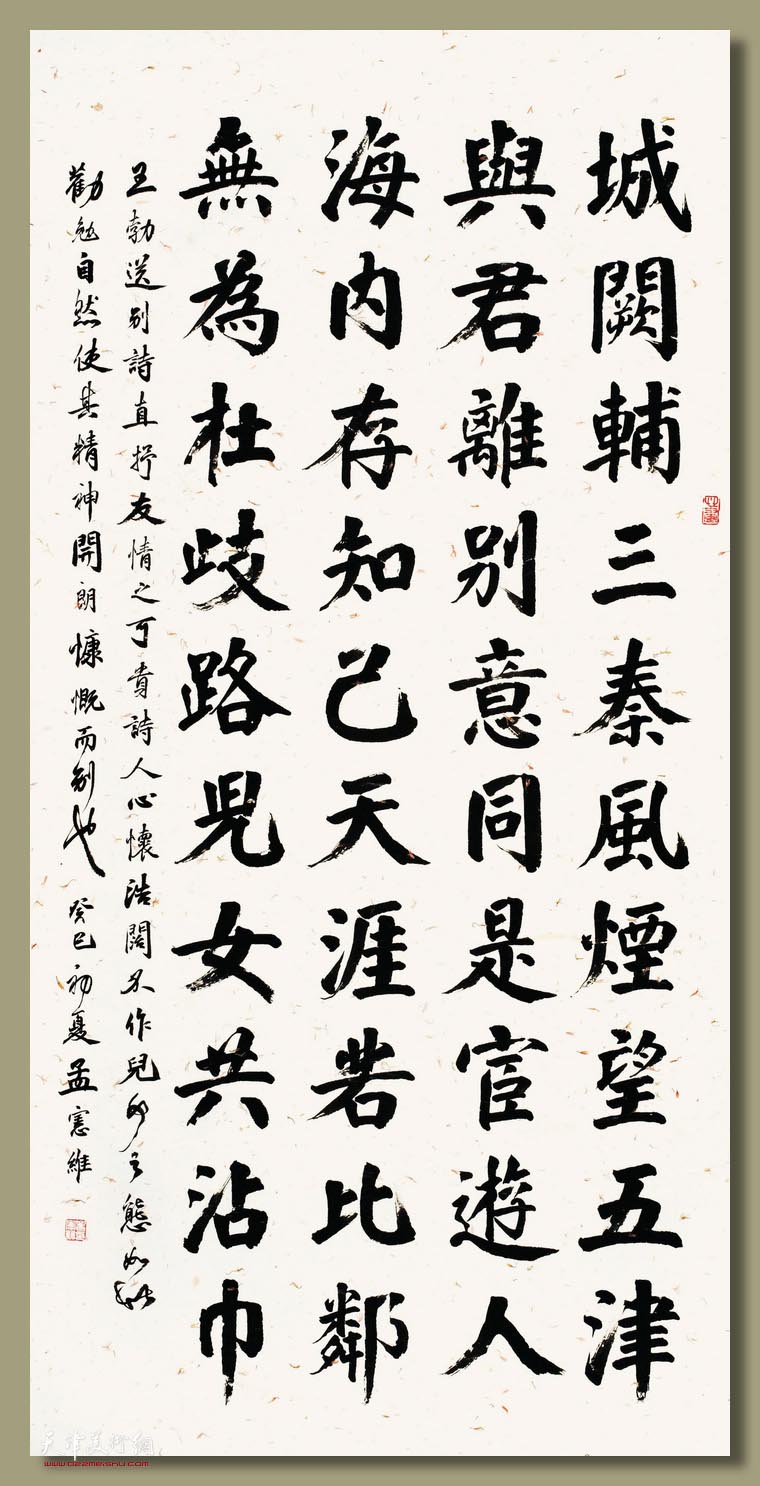 城闕輔三秦風煙望五津
與君離別意同是宦遊人
海内存知己天涯若比鄰
無為杜歧路兒女共沾巾
王勃送别詩直抒友情之可貴詩人心懷浩闊不作兒女之態如此
勸勉自然使其精神開朗慷慨而别也 癸巳初夏孟憲維
天津美術網
www.022meishu.com